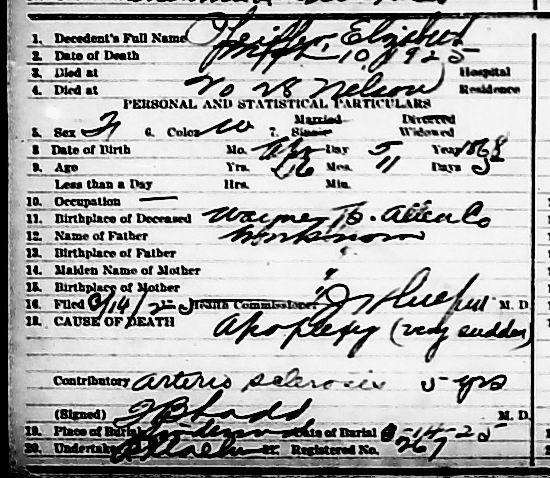 1. Decedent's Full Name Pfeiffer, Elizabeth
2. Date of Death 10 1925
3. Died at Hospital
4. Died at No 28 Nelson Residence
PERSONAL AND STATISTICAL PARTICULARS
5. Sex F 6. Color W 7. Married Single Divorced Widowed
8 Date of Birth Mo. Day 5 Year 1868
9. Age Yrs. Mos. 11 Days 5
Less than a Day Hrs. Min.
10. Occupation —
11. Birthplace of Deceased Wayne Allen Co
12. Name of Father Unknown
13. Birthplace of Father "
14. Maiden Name of Mother "
15. Birthplace of Mother "
16. Filed /14/25 Health Commissioner M. D.
18. CAUSE OF DEATH Apoplexy (very sudden)
Contributory Arterio sclerosis 5 yrs
(Signed) M. D.
19. Place of Burial Date of Burial -14-25
20. Undertaker Registered No. 267